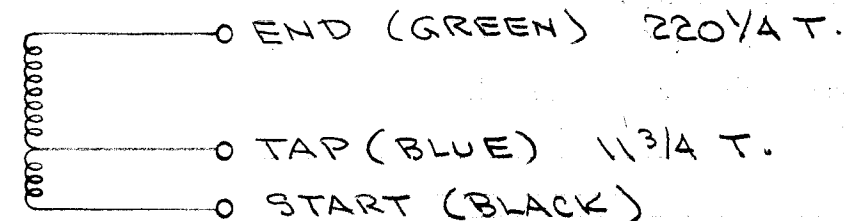 END (GREEN) 220 1/4 T.
TAP (BLUE) 11 3/4 T.
START (BLACK)